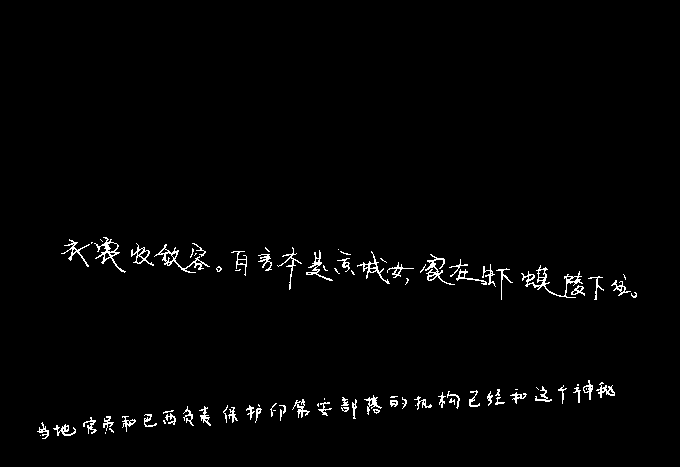 衣裳收敛容。自言本是京城女,家在虾蟆陵下住。
当地官员和巴西负责保护印第安部落的机构已经和这个神秘